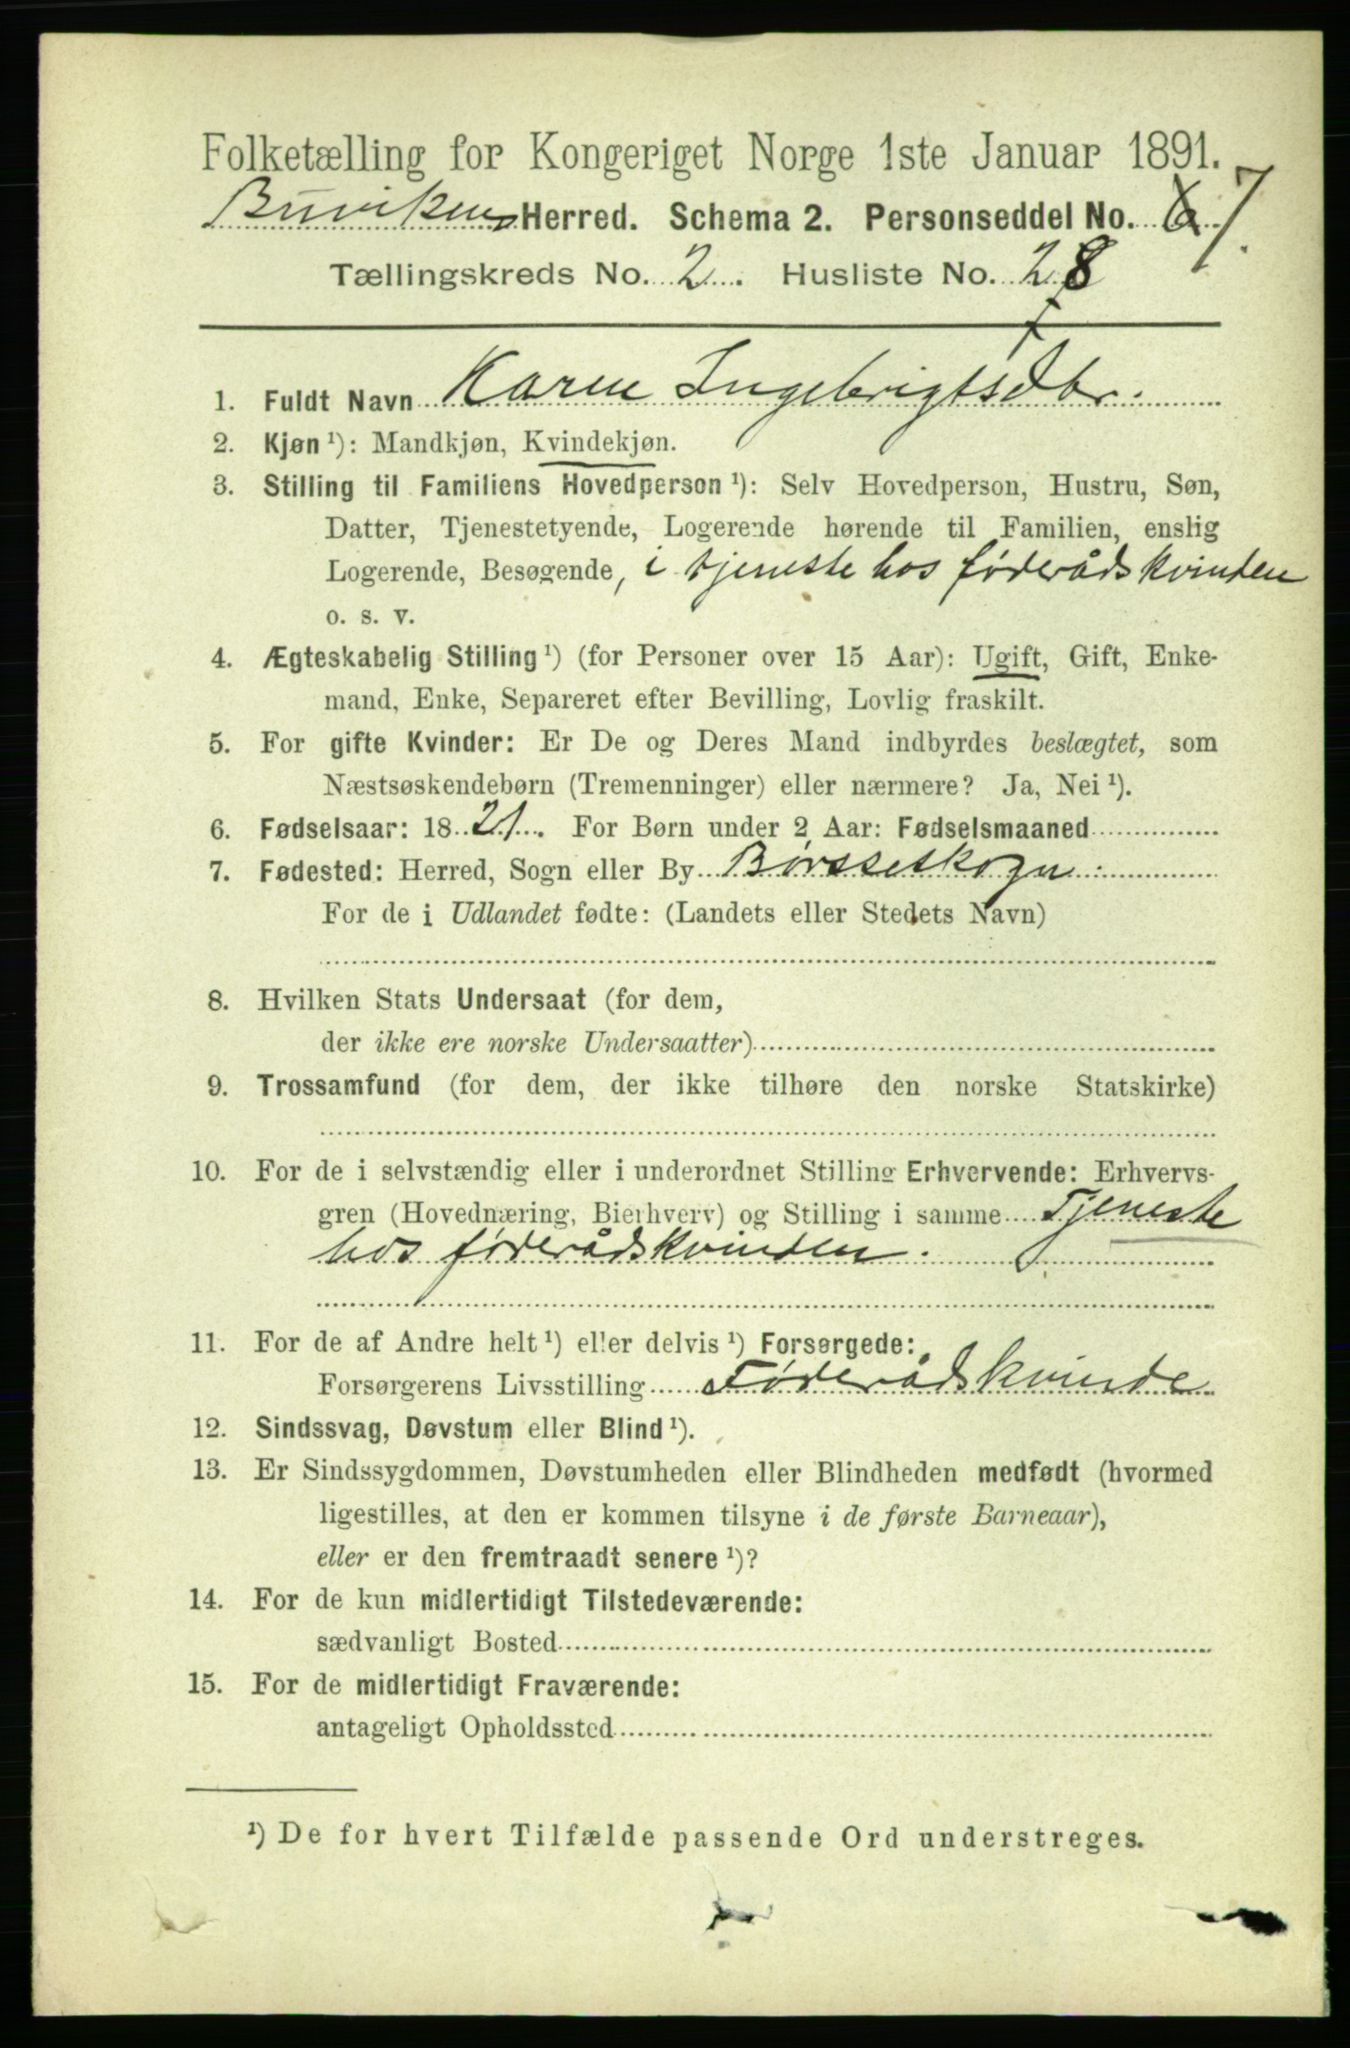 Folketælling for Kongeriget Norge 1ste Januar 1891.
Buvikens Herred. Schema 2. Personseddel No. 6 7.
Tællingskreds No. 2. Husliste No. 28
1. Fuldt Navn Karen Ingebrigtsdtr.
2. Kjøn ¹): Mandkjøn, Kvindekjøn.
3. Stilling til Familiens Hovedperson ¹): Selv Hovedperson, Hustru, Søn,
Datter, Tjenestetyende, Logerende hørende til Familien, enslig
Logerende, Besøgende, i tjeneste hos føderådskvinden
o. s. v.
4. Ægteskabelig Stilling ¹) (for Personer over 15 Aar): Ugift, Gift, Enke-
mand, Enke, Separeret efter Bevilling, Lovlig fraskilt.
5. For gifte Kvinder: Er De og Deres Mand indbyrdes beslægtet, som
Næstsøskendebørn (Tremenninger) eller nærmere? Ja, Nei ¹).
6. Fødselsaar: 18 21. For Børn under 2 Aar: Fødselsmaaned
7. Fødested: Herred, Sogn eller By Børsseskogn
For de i Udlandet fødte: (Landets eller Stedets Navn)
8. Hvilken Stats Undersaat (for dem,
der ikke ere norske Undersaatter)
9. Trossamfund (for dem, der ikke tilhøre den norske Statskirke)
10. For de i selvstændig eller i underordnet Stilling Erhvervende: Erhvervs-
gren (Hovednæring, Bierhverv) og Stilling i samme Tjeneste
hos føderådskvinden.
11. For de af Andre helt ¹) eller delvis ¹) Forsørgede:
Forsørgerens Livsstilling Føderådskvinde
12. Sindssvag, Døvstum eller Blind ¹).
13. Er Sindssygdommen, Døvstumheden eller Blindheden medfødt (hvormed
ligestilles, at den er kommen tilsyne i de første Barneaar),
eller er den fremtraadt senere ¹)?
14. For de kun midlertidigt Tilstedeværende:
sædvanligt Bosted
15. For de midlertidigt Fraværende:
antageligt Opholdssted
¹) De for hvert Tilfælde passende Ord understreges.